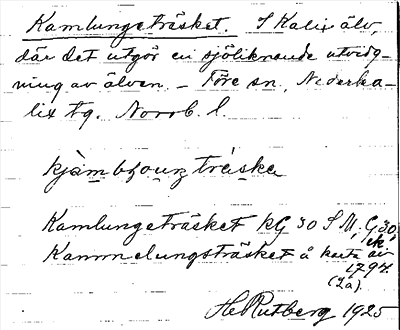 Kamlungeträsket. I Kalix älv,
där det utgör en sjöliknande utvidg-
ning av älven. – Töre sn, Nederka-
lix tg. Norrb. l.
träske
Kamlungeträsket KG 30 SM, G 30,
Kammelungsträsket å karta av
1797.
H. Rutberg 1925